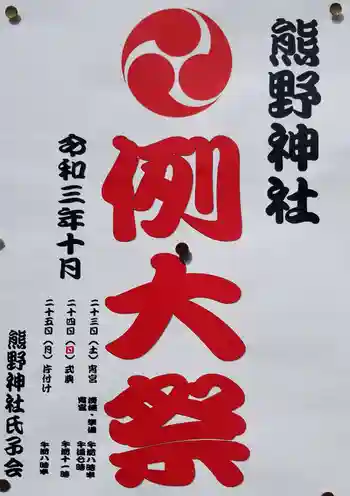 熊野神社
例大祭
令和三年十月
二十三日（土）宵宮 清掃・準備 午前八時半
宵宮 午後七時
二十四日（日）式典 午前十一時
二十五日（月）片付け 午前八時半
熊野神社氏子会